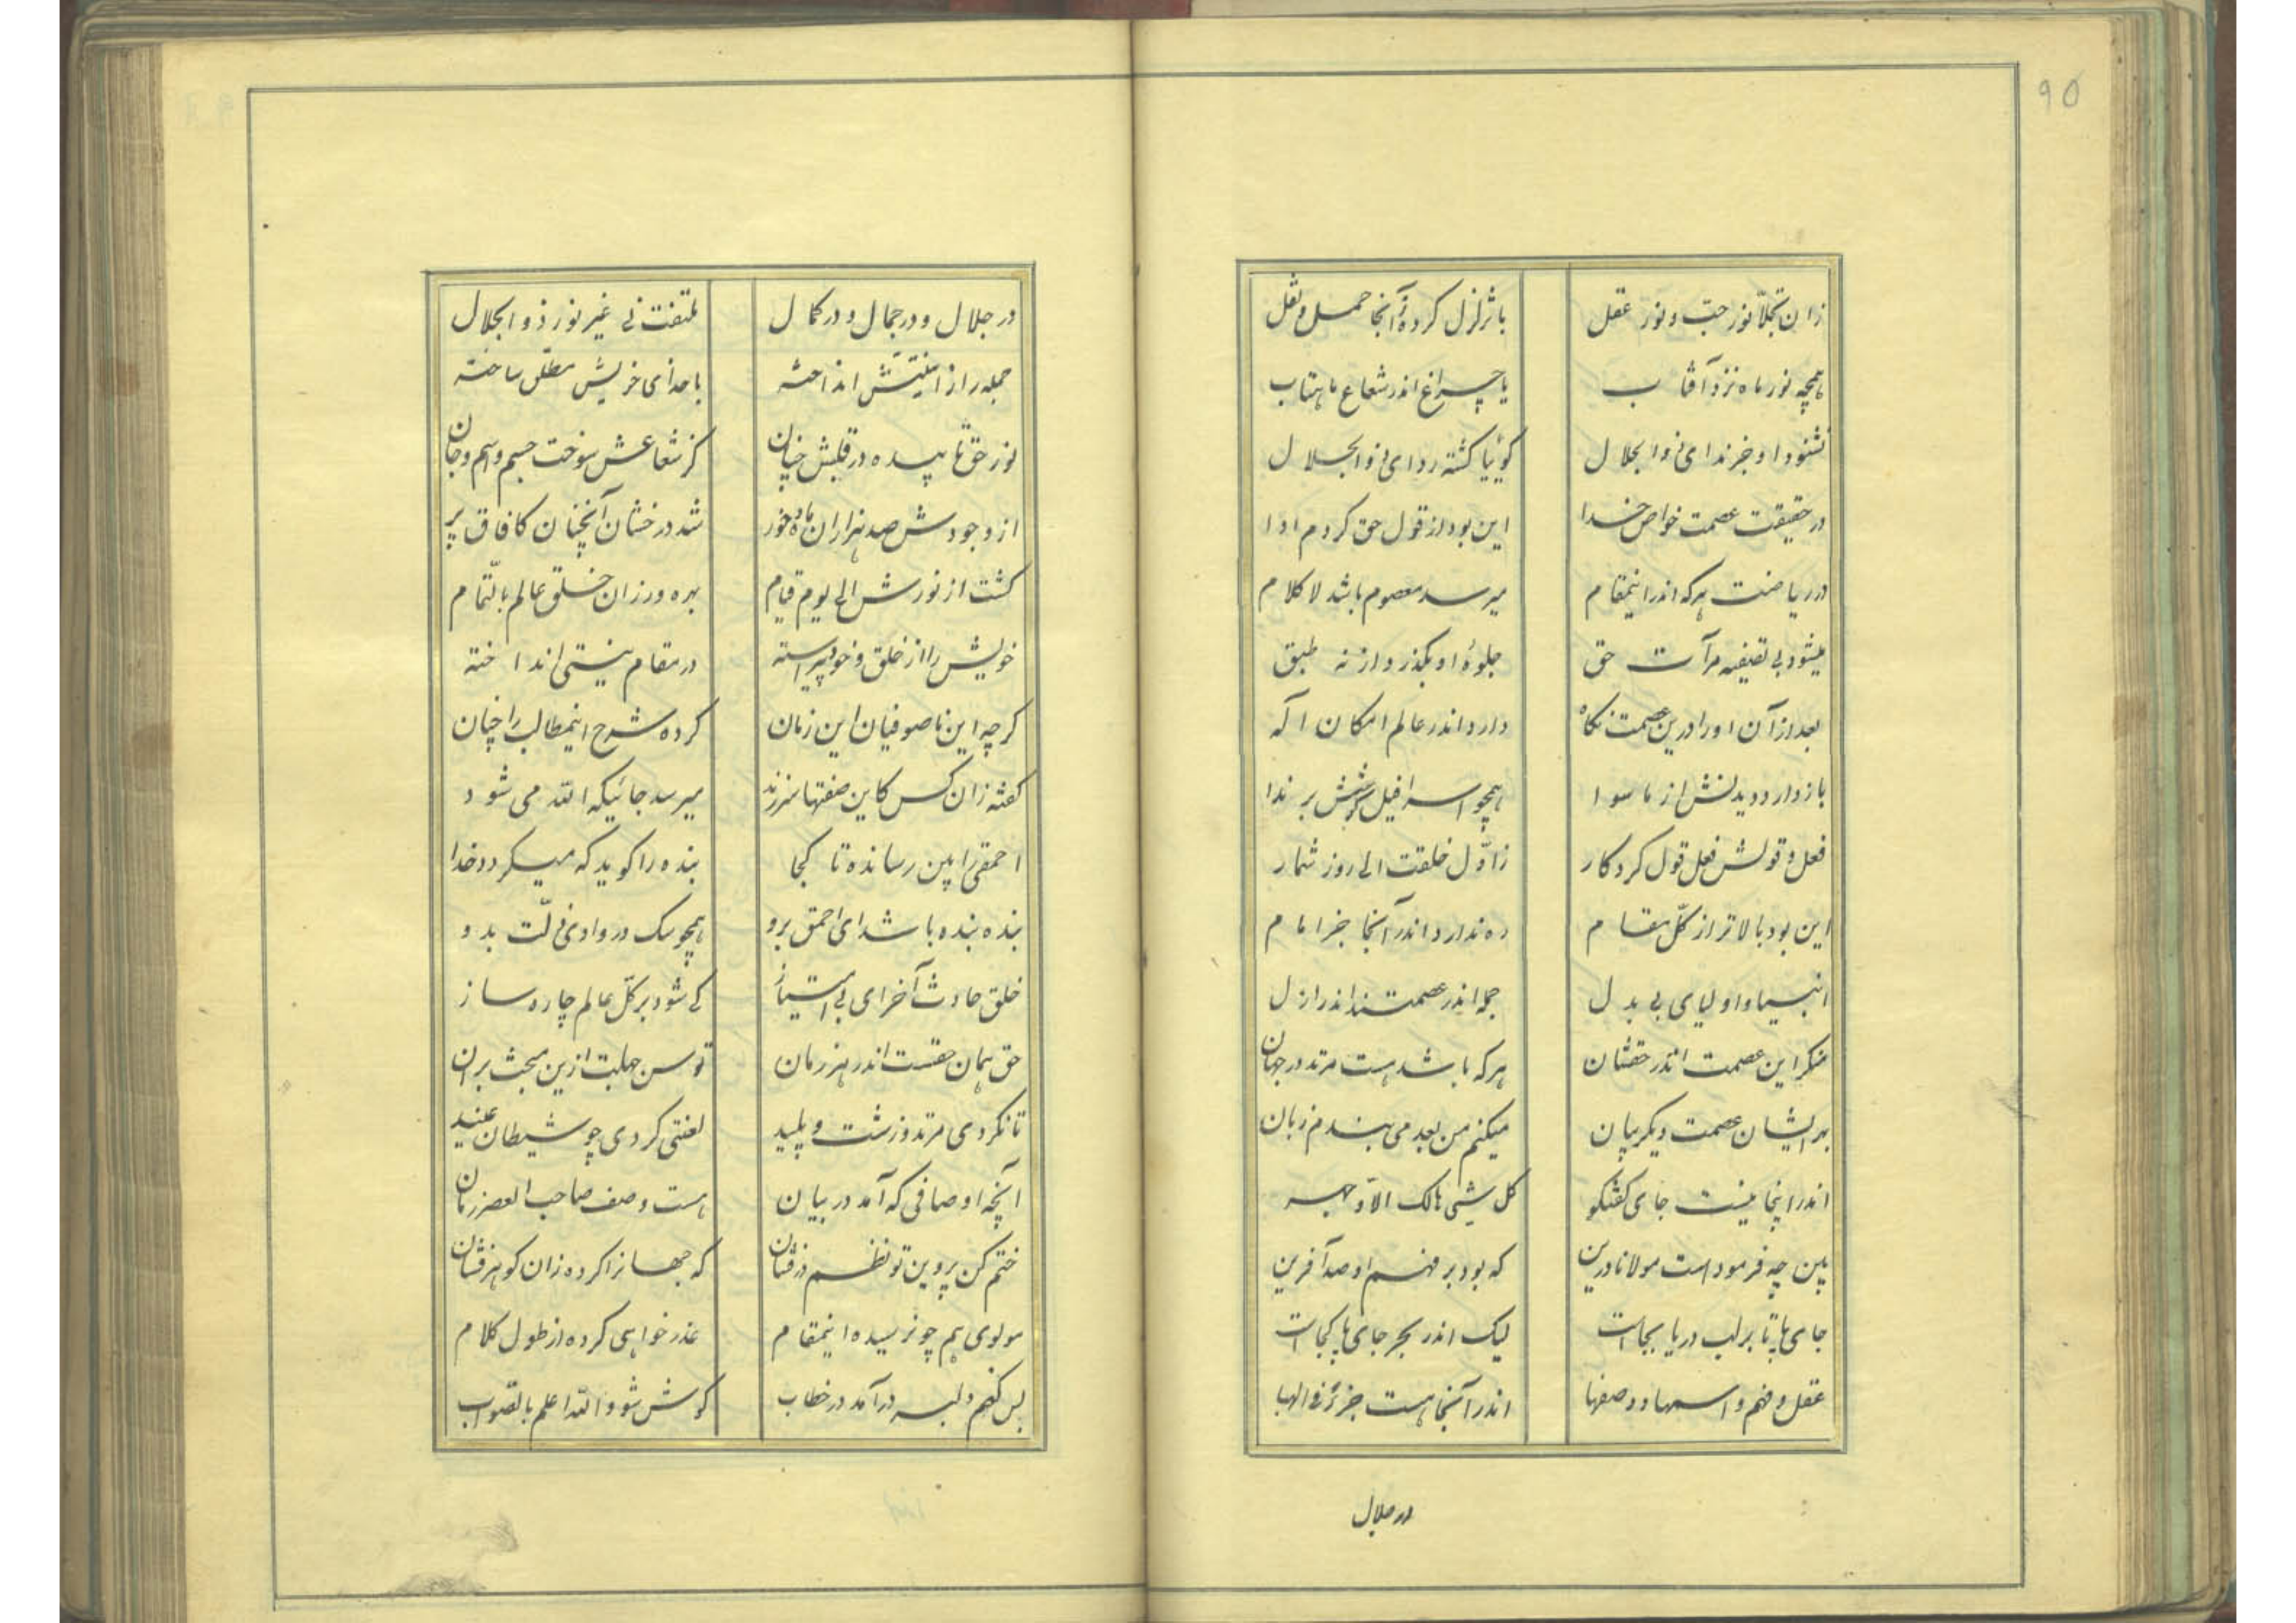 ۹۵
زان تجلّا نور حبّ و نور عقل	با تزلزل کرده زآنجا حمل و نقل
همچه نور ماه نزد آفتاب	یا چراغ اندر شعاع ماهتاب
نشنود او جز ندای ذوالجلال	گوئیا گشته ردای ذوالجلال
در حقیقت عصمت خواص خدا	این بود از قول حق کردم ادا
در ریاضت هرکه اندر اینمقام	میرسد معصوم باشد لاکلام
میشود بی تصفیه مرآت حق	جلوهٔ او بگذرد از نه طبق
بعد از آن او را درین عصمت نگاه	دارد اندر عالم امکان اله
باز دارد دیدنش از ماسوا	همچو اسرافیل گوشش بر ندا
فعل و قولش فعل قول کردگار	زاوّل خلقت الی روز شمار
این بود بالاتر از کلّ مقام	ره ندارد اندر آنجا جز امام
انبیا و اولیای بی بدل	جمله اندر عصمتند اندر ازل
منکر این عصمت اندر حقشان	هرکه باشد هست مرتد در جهان
بهر ایشان عصمت دیگر بیان	میکنم من بعد می بندم زبان
اندر اینجا نیست جای گفتگو	کل شیی هالک الاّ وجهه
بین چه فرمود است مولانا درین	که بود بر فهم او صد آفرین
جای پا تا بر لب دریا بجاست	لیک اندر بحر جای پا کجاست
عقل و فهم و اسمها و وصفها	اندر آنجا هست جزئی والها
در جلال
در جلال و در جمال و در کمال	ملتفت نی غیر نور ذوالجلال
جمله را از انیّتش انداخته	با خدای خویش مطلق ساخته
نور حق تابیده در قلبش چنان	کز شعاعش سوخت جسم و اسم و جان
از وجودش صد هزاران ماه و خور	شد درخشان آنچنان کافاق پر
گشت از نورش الی یوم قیام	بهره ور زان خلق عالم بالتّمام
خویش را از خلق و خود پیراسته	در مقام نیستی انداخته
گرچه این ناصوفیان این زمان	کرده شرح اینمطالب را چنان
گفته زان کس کاین صفتها سرزند	میرسد جائیکه الله می شود
احمقی را بین رسانده تا کجا	بنده را گوید که میگردد خدا
بنده بنده باشد ای احمق برو	همچو سگ در وادی ذلّت بدو
خلق حادث آخر ای بی امتیاز	کی شود بر کلّ عالم چاره ساز
حق همان حقست اندر هر زمان	توسن جهلت ازین مبحث بران
تا نگردی مرتد و زشت و پلید	لعنتی گردی چو شیطان عنید
آنچه اوصافی که آمد در بیان	هست وصف صاحب العصر زمان
ختم کن پروین تو نظم درفشان	که جهانرا کرده زان گوهرفشان
مولوی هم چو نرسیده اینمقام	عذر خواهی کرده از طول کلام
بس کنم دلبر درآمد در خطاب	گوش شو والله اعلم بالصّواب